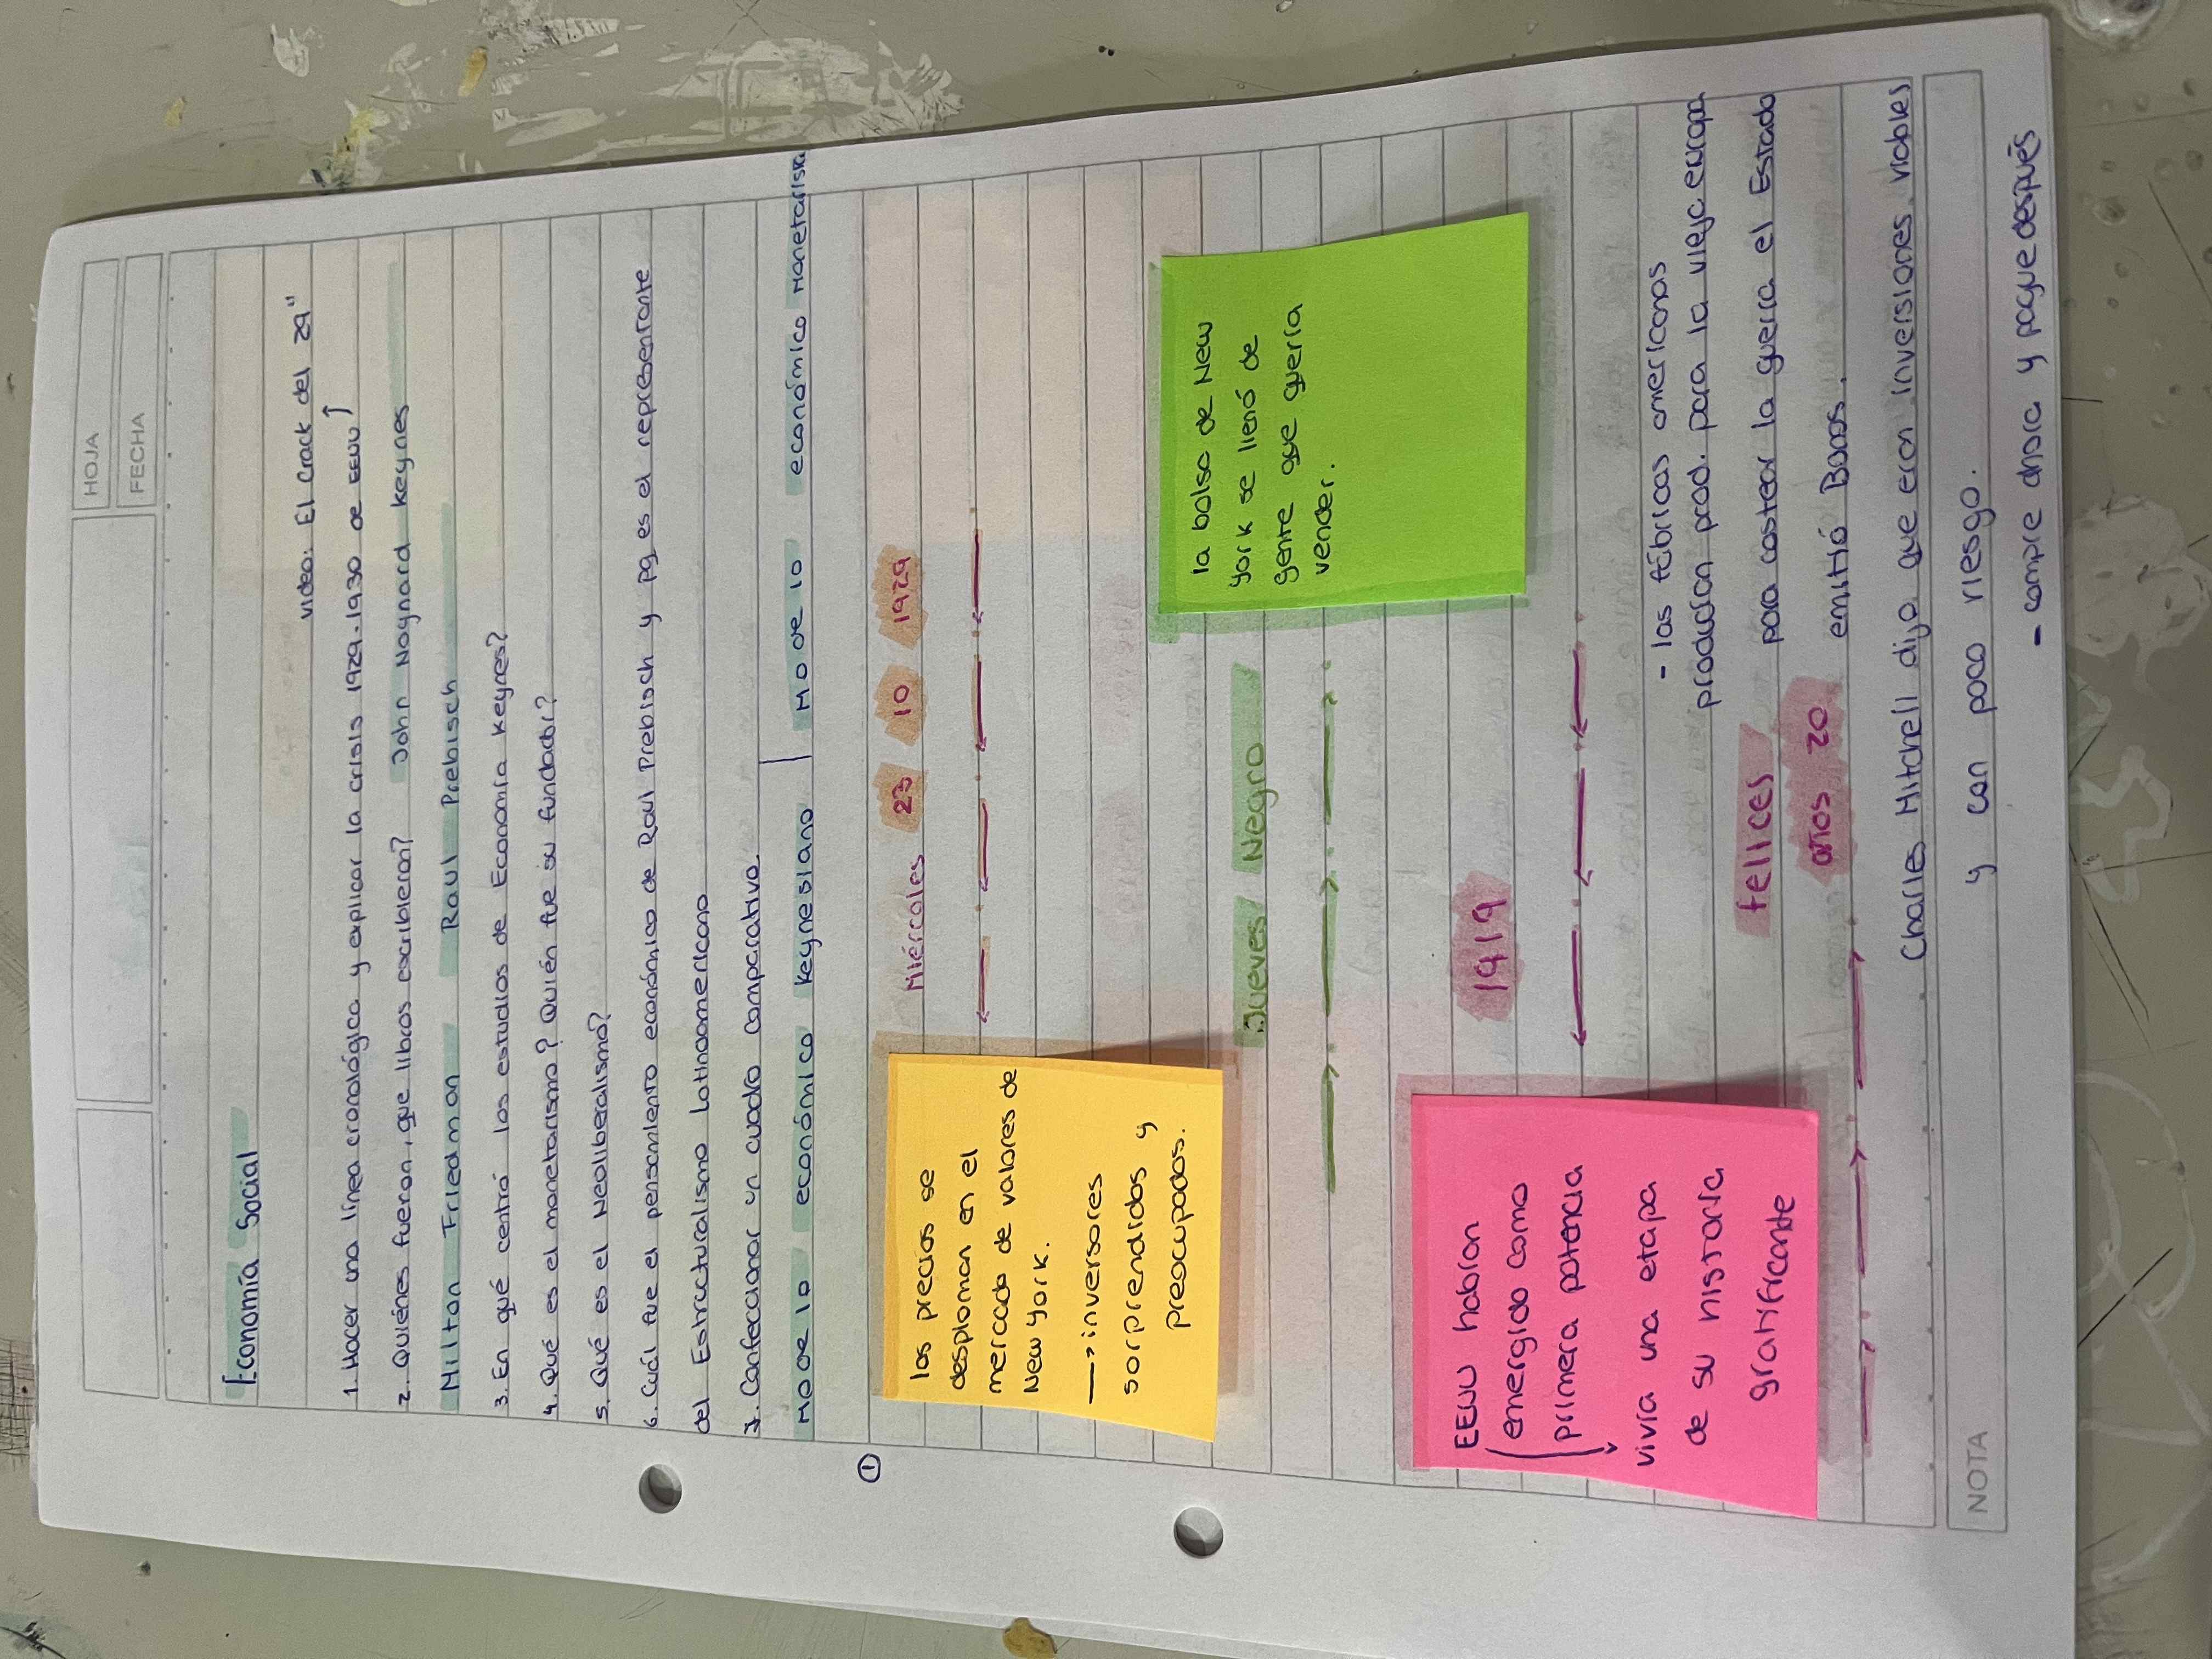 HOJA
FECHA
Economía Social
video: El Crack del 29"
1. Hacer una línea cronológica y explicar la crisis 1929-1930 de EEUU
2. Quiénes fueron, que libros escribieron? John Maynard Keynes
Milton Friedman Raul Prebisch
3. En qué centró los estudios de Economía Keynes?
4. Qué es el monetarismo? Quién fue su fundador?
5. Qué es el Neoliberalismo?
6. Cuál fue el pensamiento económico de Raul Prebisch y pq es el representante
del Estructuralismo Latinoamericano
7. Confeccionar un cuadro comparativo.
Modelo económico Keynesiano | Modelo económico Monetarista
①
Miércoles 23 10 1929
los precios se
desploman en el
mercado de valores de
New York.
→ inversores
sorprendidos y
preocupados.
Jueves Negro
la bolsa de New
York se llenó de
gente que quería
vender.
1919
EEUU habían
emergido como
primera potencia
vivía una etapa
de su historia
gratificante
- las fábricas americanas
producían prod. para la vieja europa
felices
años 20
para costear la guerra el Estado
emitió Bonos.
Charles Mitchell dijo que eran inversiones viables
y con poco riesgo.
- compre ahora y pague después
NOTA